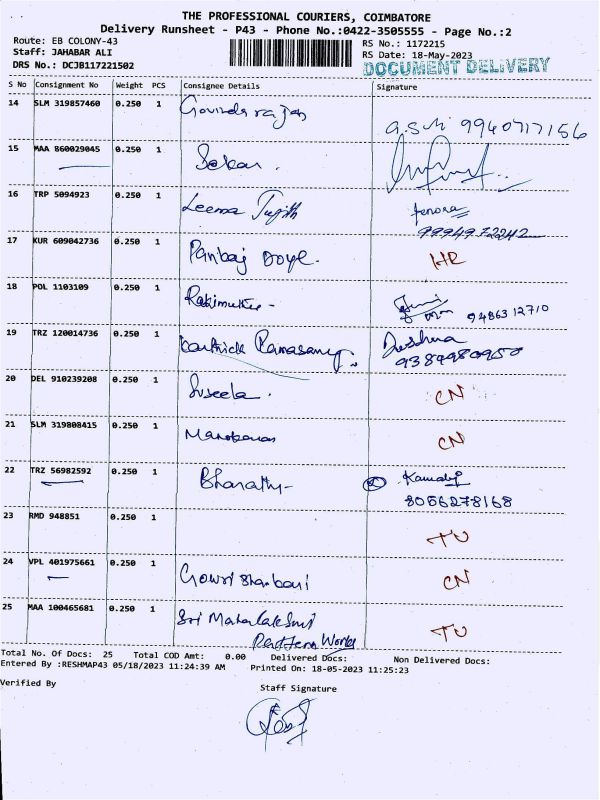 THE PROFESSIONAL COURIERS, COIMBATORE
Delivery Runsheet - P43 - Phone No.:0422-3505555 - Page No.:2
Route: EB COLONY-43
RS No.: 1172215
Staff: JAHABAR ALI
RS Date: 18-May-2023
DRS No.: DCJB117221502
DOCUMENT DELIVERY
S No Consignment No Weight PCS Consignee Details Signature
14 SLM 319857460 0.250 1 Govinda rajan
9940717156
15 MAA 860029045 0.250 1 Sekar.
16 TRP 5094923 0.250 1 Leema
9994972242
17 KUR 609042736 0.250 1 Pankaj HR
18 POL 1103109 0.250 1
9486312710
19 TRZ 120014736 0.250 1 Karthick Ramasamy
9389980950
20 DEL 910239208 0.250 1 Suseela. CN
21 SLM 319808415 0.250 1 CN
22 TRZ 56982592 0.250 1 Bharathy-
8056278168
23 RMD 948851 0.250 1 TU
24 VPL 401975661 0.250 1 Gowri CN
25 MAA 100465681 0.250 1 Sri Mahalakshmi TU
Pattern Works
Total No. Of Docs: 25 Total COD Amt: 0.00 Delivered Docs: Non Delivered Docs:
Entered By :RESHMAP43 05/18/2023 11:24:39 AM Printed On: 18-05-2023 11:25:23
Verified By
Staff Signature